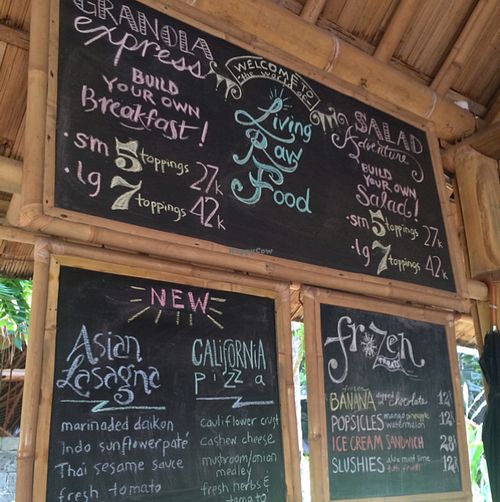 GRANOLA
express
BUILD
YOUR OWN
Breakfast!
• sm 5 toppings 27k
• lg 7 toppings 42k
WELCOME TO
the World OF
Living
Raw
Food
SALAD
Adventure
BUILD
YOUR OWN
Salad!
• sm 5 toppings 27k
• lg 7 toppings 42k
NEW
Asian
Lasagna
marinaded daikon
Indo sunflower pate
Thai sesame sauce
fresh tomato
CALIFORNIA
pizza
cauliflower crust
cashew cheese
mushroom/onion
medley
fresh herbs &
tomato
frozen
TREATS
frozen
BANANA dipped in chocolate 12k
POPSICLES mango pineapple watermelon 12k
ICE CREAM SANDWICH 28k
SLUSHIES tutti frutti!
HappyCow